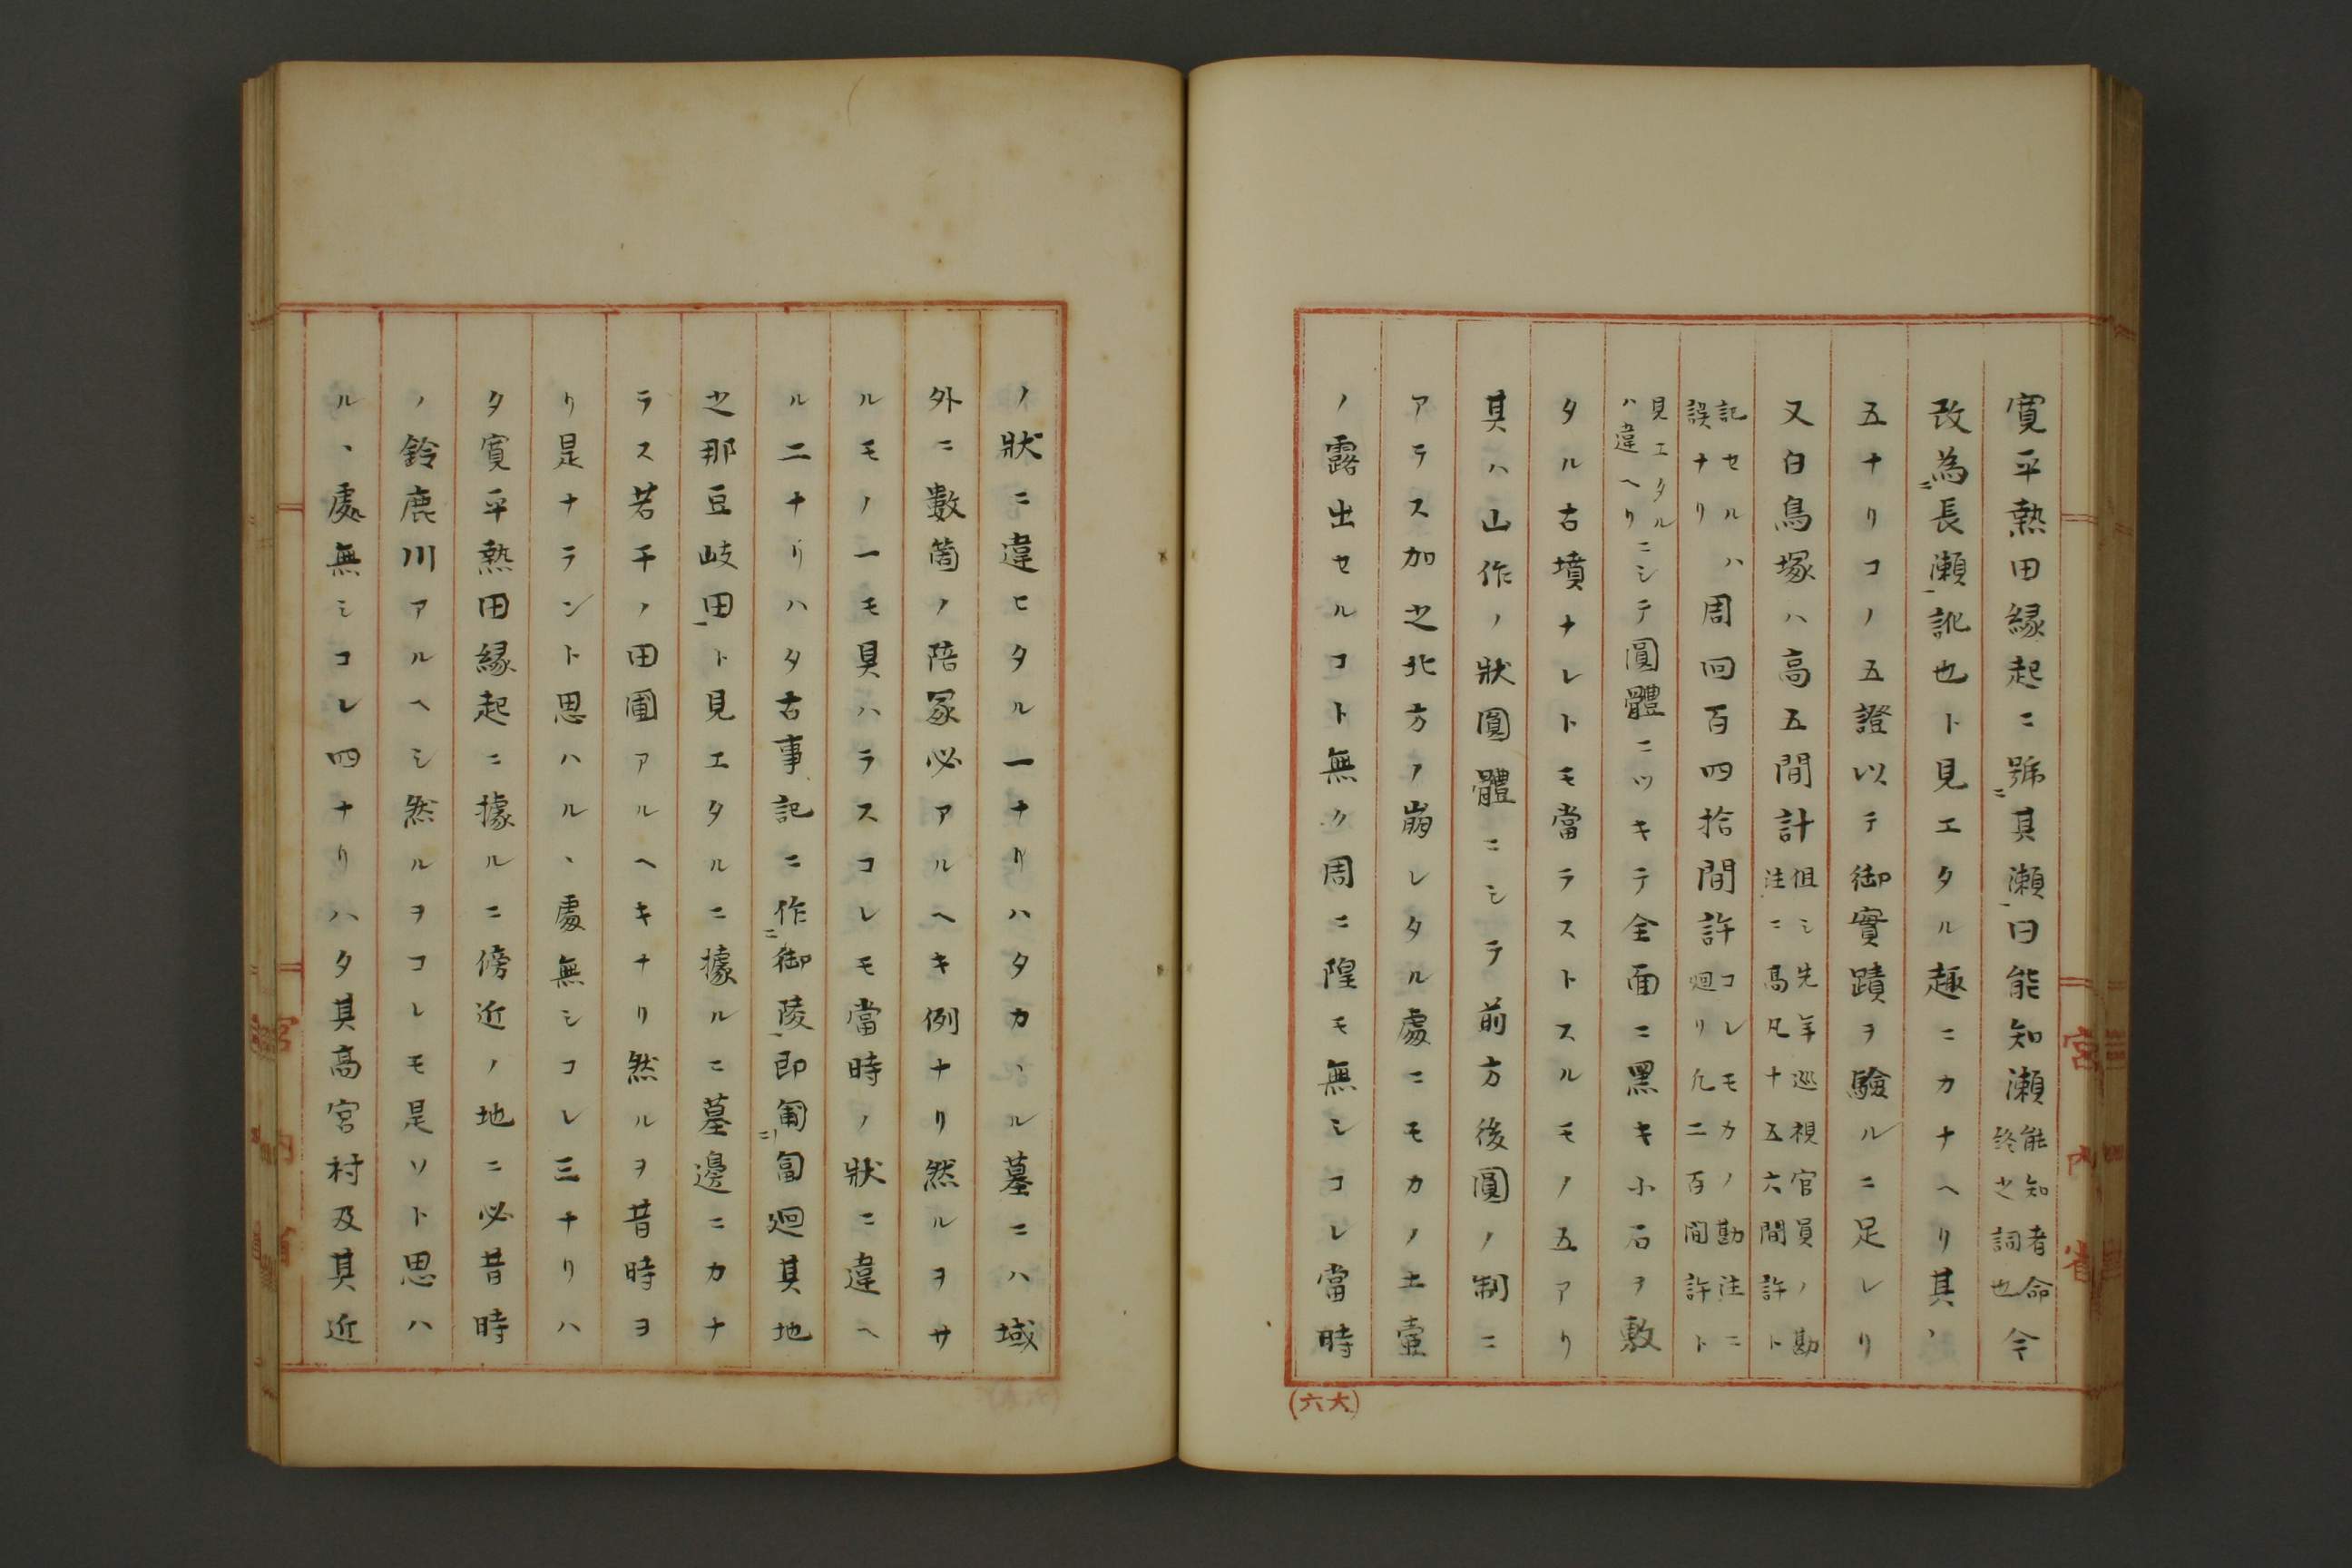 寛平熱田縁起ニ號其瀬曰能知瀬能知者命終之詞也今
改為長瀬訛也ト見エタル趣ニカナヘリ其ヽ
五ナリコノ五證以テ御實蹟ヲ驗ルニ足レリ
又白鳥塚ハ高五間計但シ先年巡視官員ノ勘注ニ高凡十五六間許ト
記セルハ誤ナリ周回百四拾間許コレモカノ勘注ニ廻リ凡二百間許ト
見エタルハ違ヘリニシテ圓體ニツキテ全面ニ黒キ小石ヲ敷
タル古墳ナレトモ當ラストスルモノ五アリ
其ハ山作ノ狀圓體ニシテ前方後圓ノ制ニ
アラス加之北方ノ崩レタル處ニモカノ土壷
ノ露出セルコト無ク周ニ隍モ無シコレ當時
ノ狀ニ違ヒタル一ナリハタカヽル墓ニハ域
外ニ數箇ノ陪冢必アルヘキ例ナリ然ルヲサ
ルモノ一モ具ハラスコレモ當時ノ狀ニ違ヘ
ル二ナリハタ古事記ニ作御陵即匍匐廻其地
之那豆岐田ト見エタルニ據ルニ墓邊ニカナ
ラス若干ノ田圃アルヘキナリ然ルヲ昔時ヲ
リ是ナラント思ハルヽ處無シコレ三ナリハ
タ寛平熱田縁起ニ據ルニ傍近ノ地ニ必昔時
ノ鈴鹿川アルヘシ然ルヲコレモ是ソト思ハ
ルヽ處無シコレ四ナリハタ其高宮村及其近
宮內省
(六大)